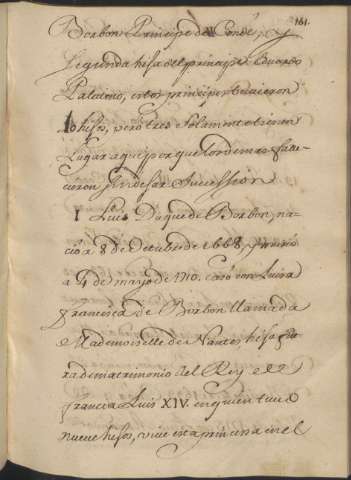 161.
Borbon Principe de Condè, y
segunda hija del principe Eduardo
Palatino, estos principes tuvieron
10 hijos, pero tres solamente tienen
Lugar aqui porque los demas falle-
cieron sin dejar Succession
1 Luis Duque de Borbon, na-
ció a 8 de Octubre de 1668 y murio
a 4 de mayo de 1710. casó con Luisa
Francisca de Borbon llamada
Mademoiselle de Nantes, hija
ra de matrimonio del Rey de
francia Luis XIV. en quien tuvo
nueve hijos, vive esta princesa en el